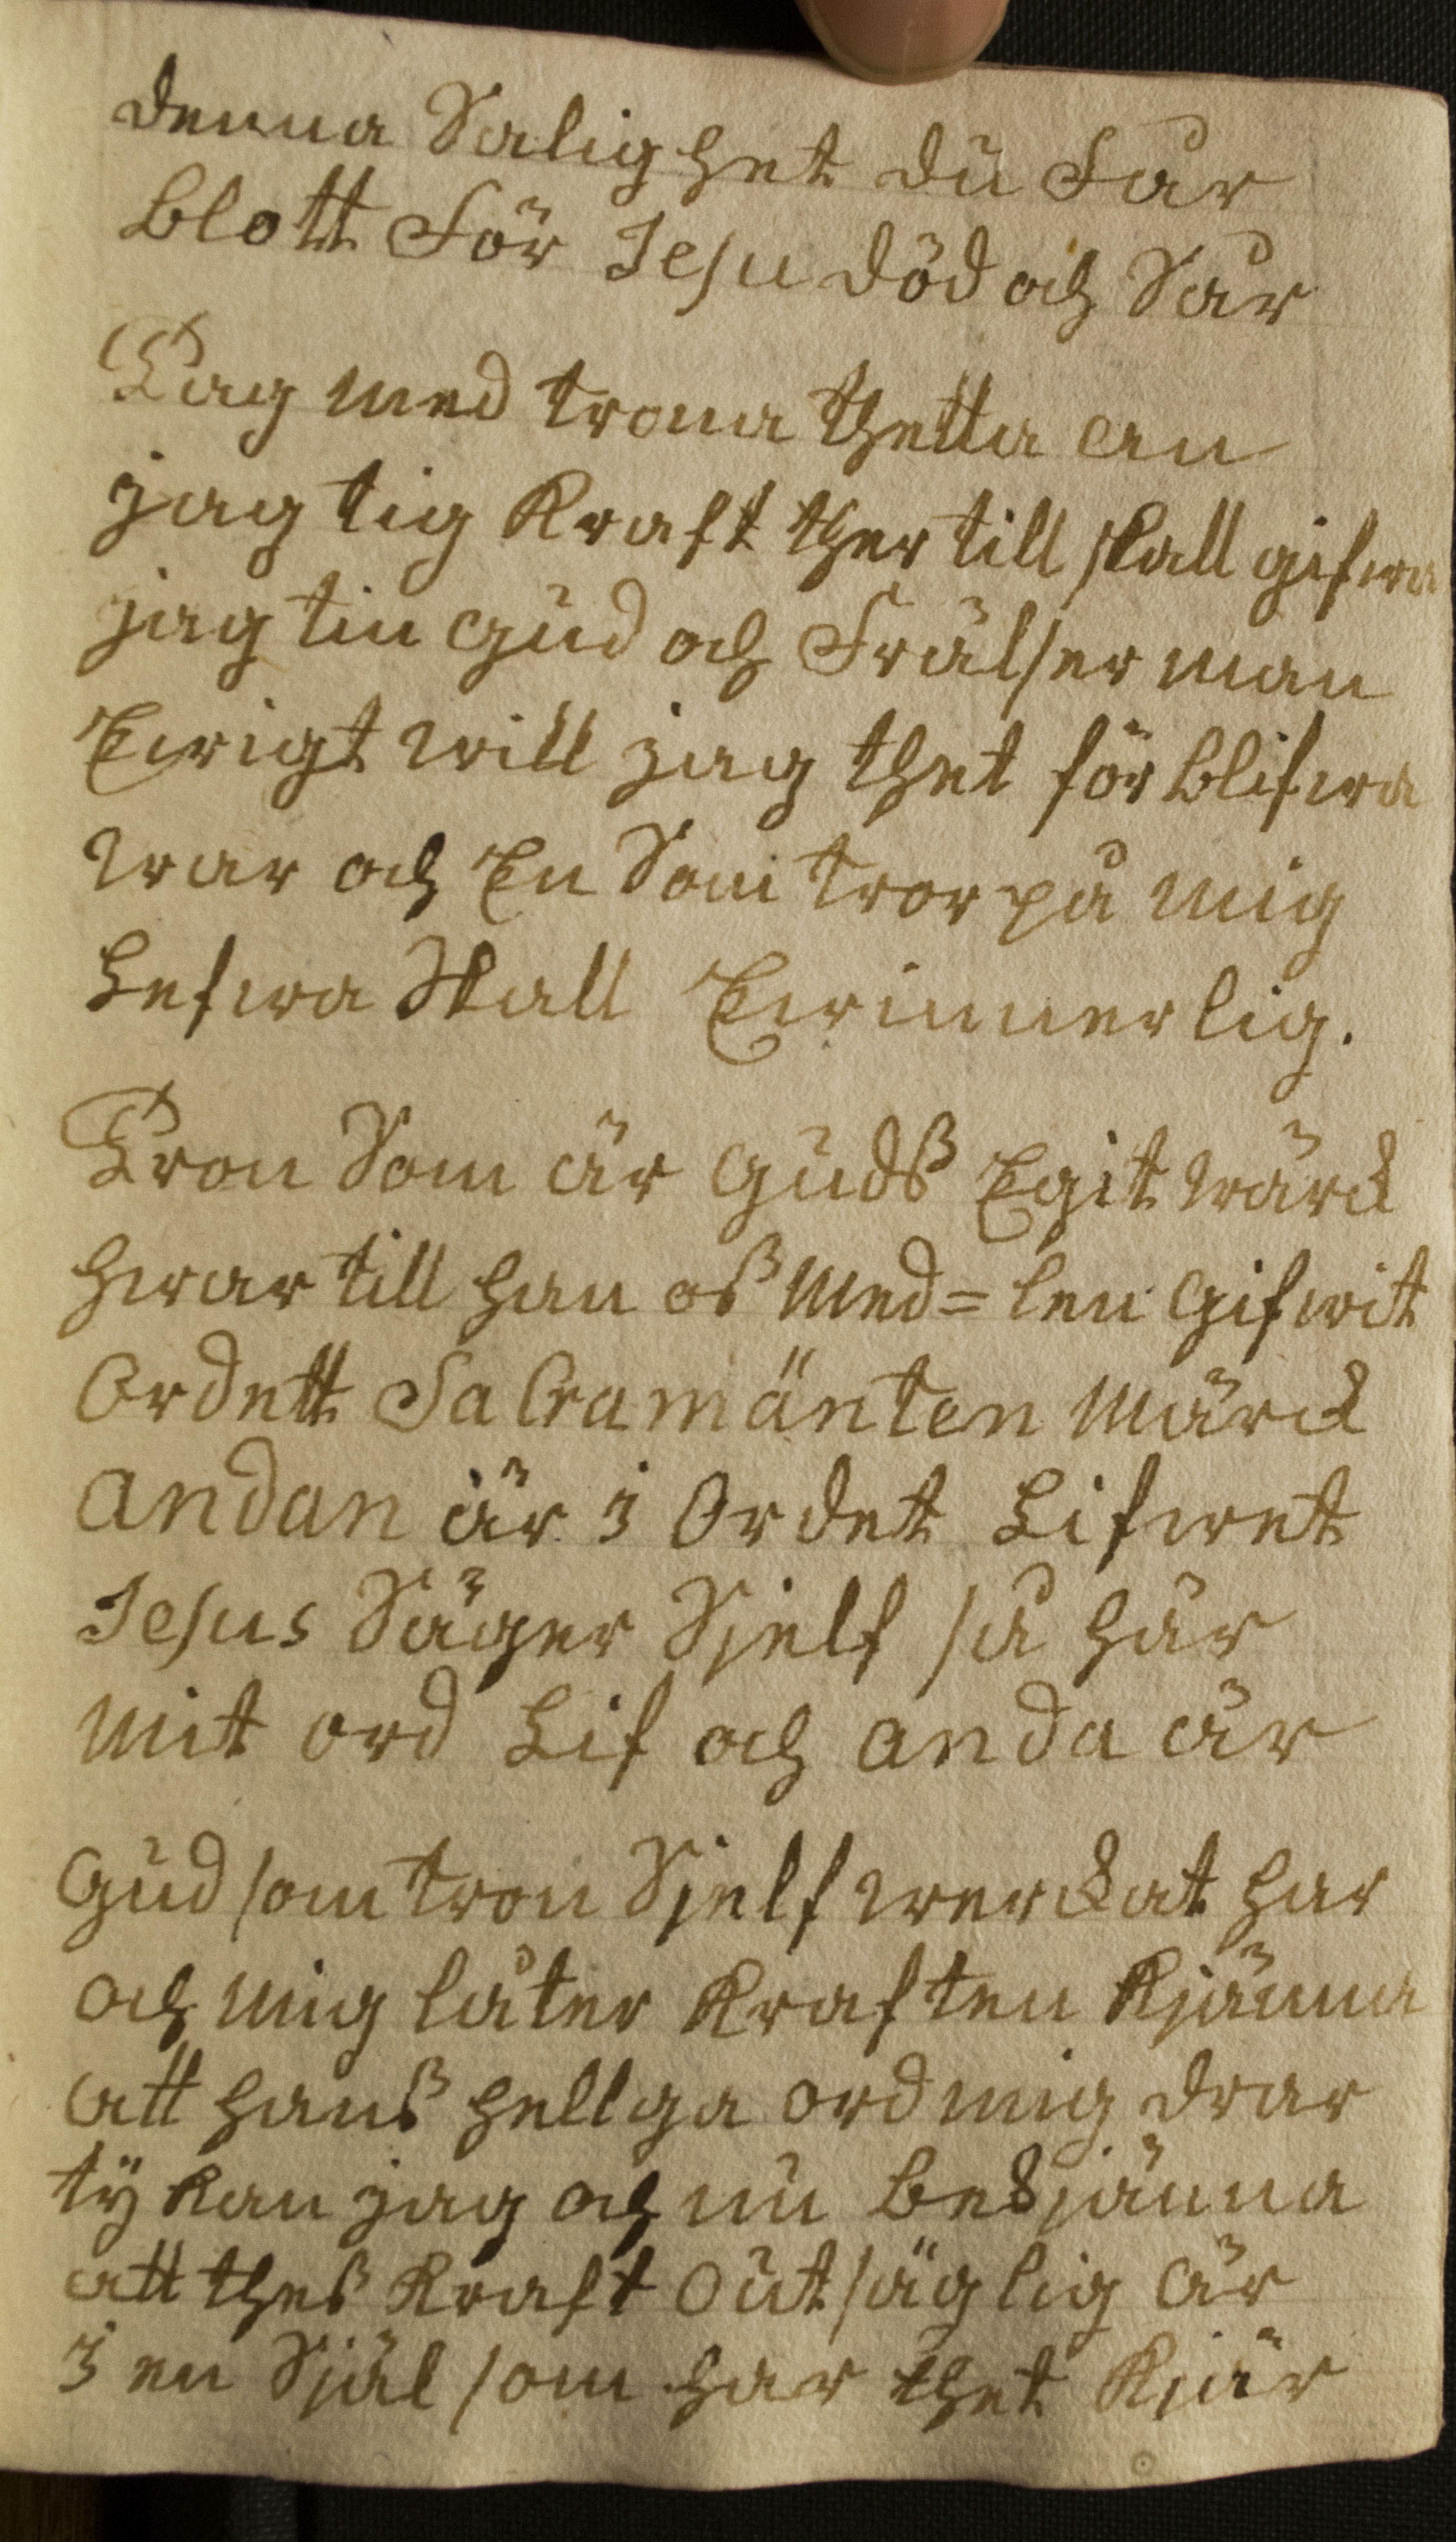 denna Salighet du Får
blott För Jesu död och Sår
Tag med trona thetta an
jag tig Kraft ther till skall gifwa
jag tin gud och Frälser man
Ewigt will jag thet för blifwa
war och En Som tror på mig
Lefwa Skall Ewinnerlig.
Tron Som är gudß Egit wärck
hwar till han oß Med=len gifwit
Ordett SaCramänten Märck
andan är i Ordet Lifwet
Jesus Säger Sjelf så här
mit ord Lif och anda är
gud som tron Sjelf werckat har
och mig låter Kraften Kjänna
att hanß hellga ord mig drar
tÿ Kan jag och nu bekjänna
att theß Kraft outsäglig är
i en Själ som har thet Kjär